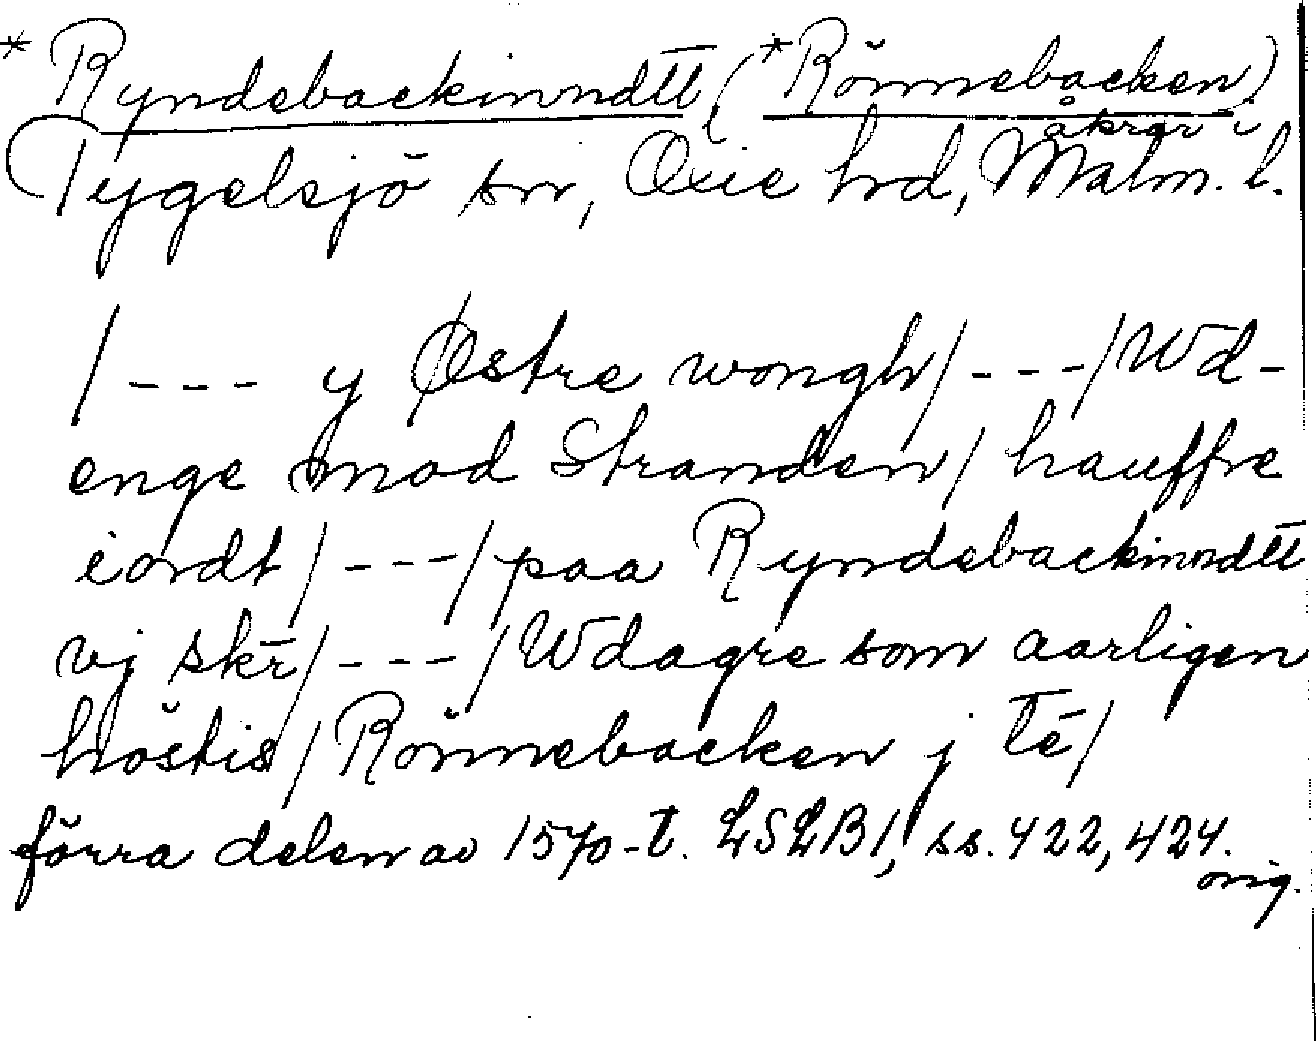 * Ryndebackinndtt (*Rönnebacken)
åkrar i
Tygelsjö sn, Oxie hrd, Malm. l.
/--- y Østre wongh/---/Wd-
enge mod Stranden/ hauffre
iordt/---/paa Ryndebackinndtt
vj skr̄/---/Wdagre som aarligen
höstis/Rönnebacken j tē/
förra delen av 1570-t. LSLB1, ss. 422, 424.
orig.